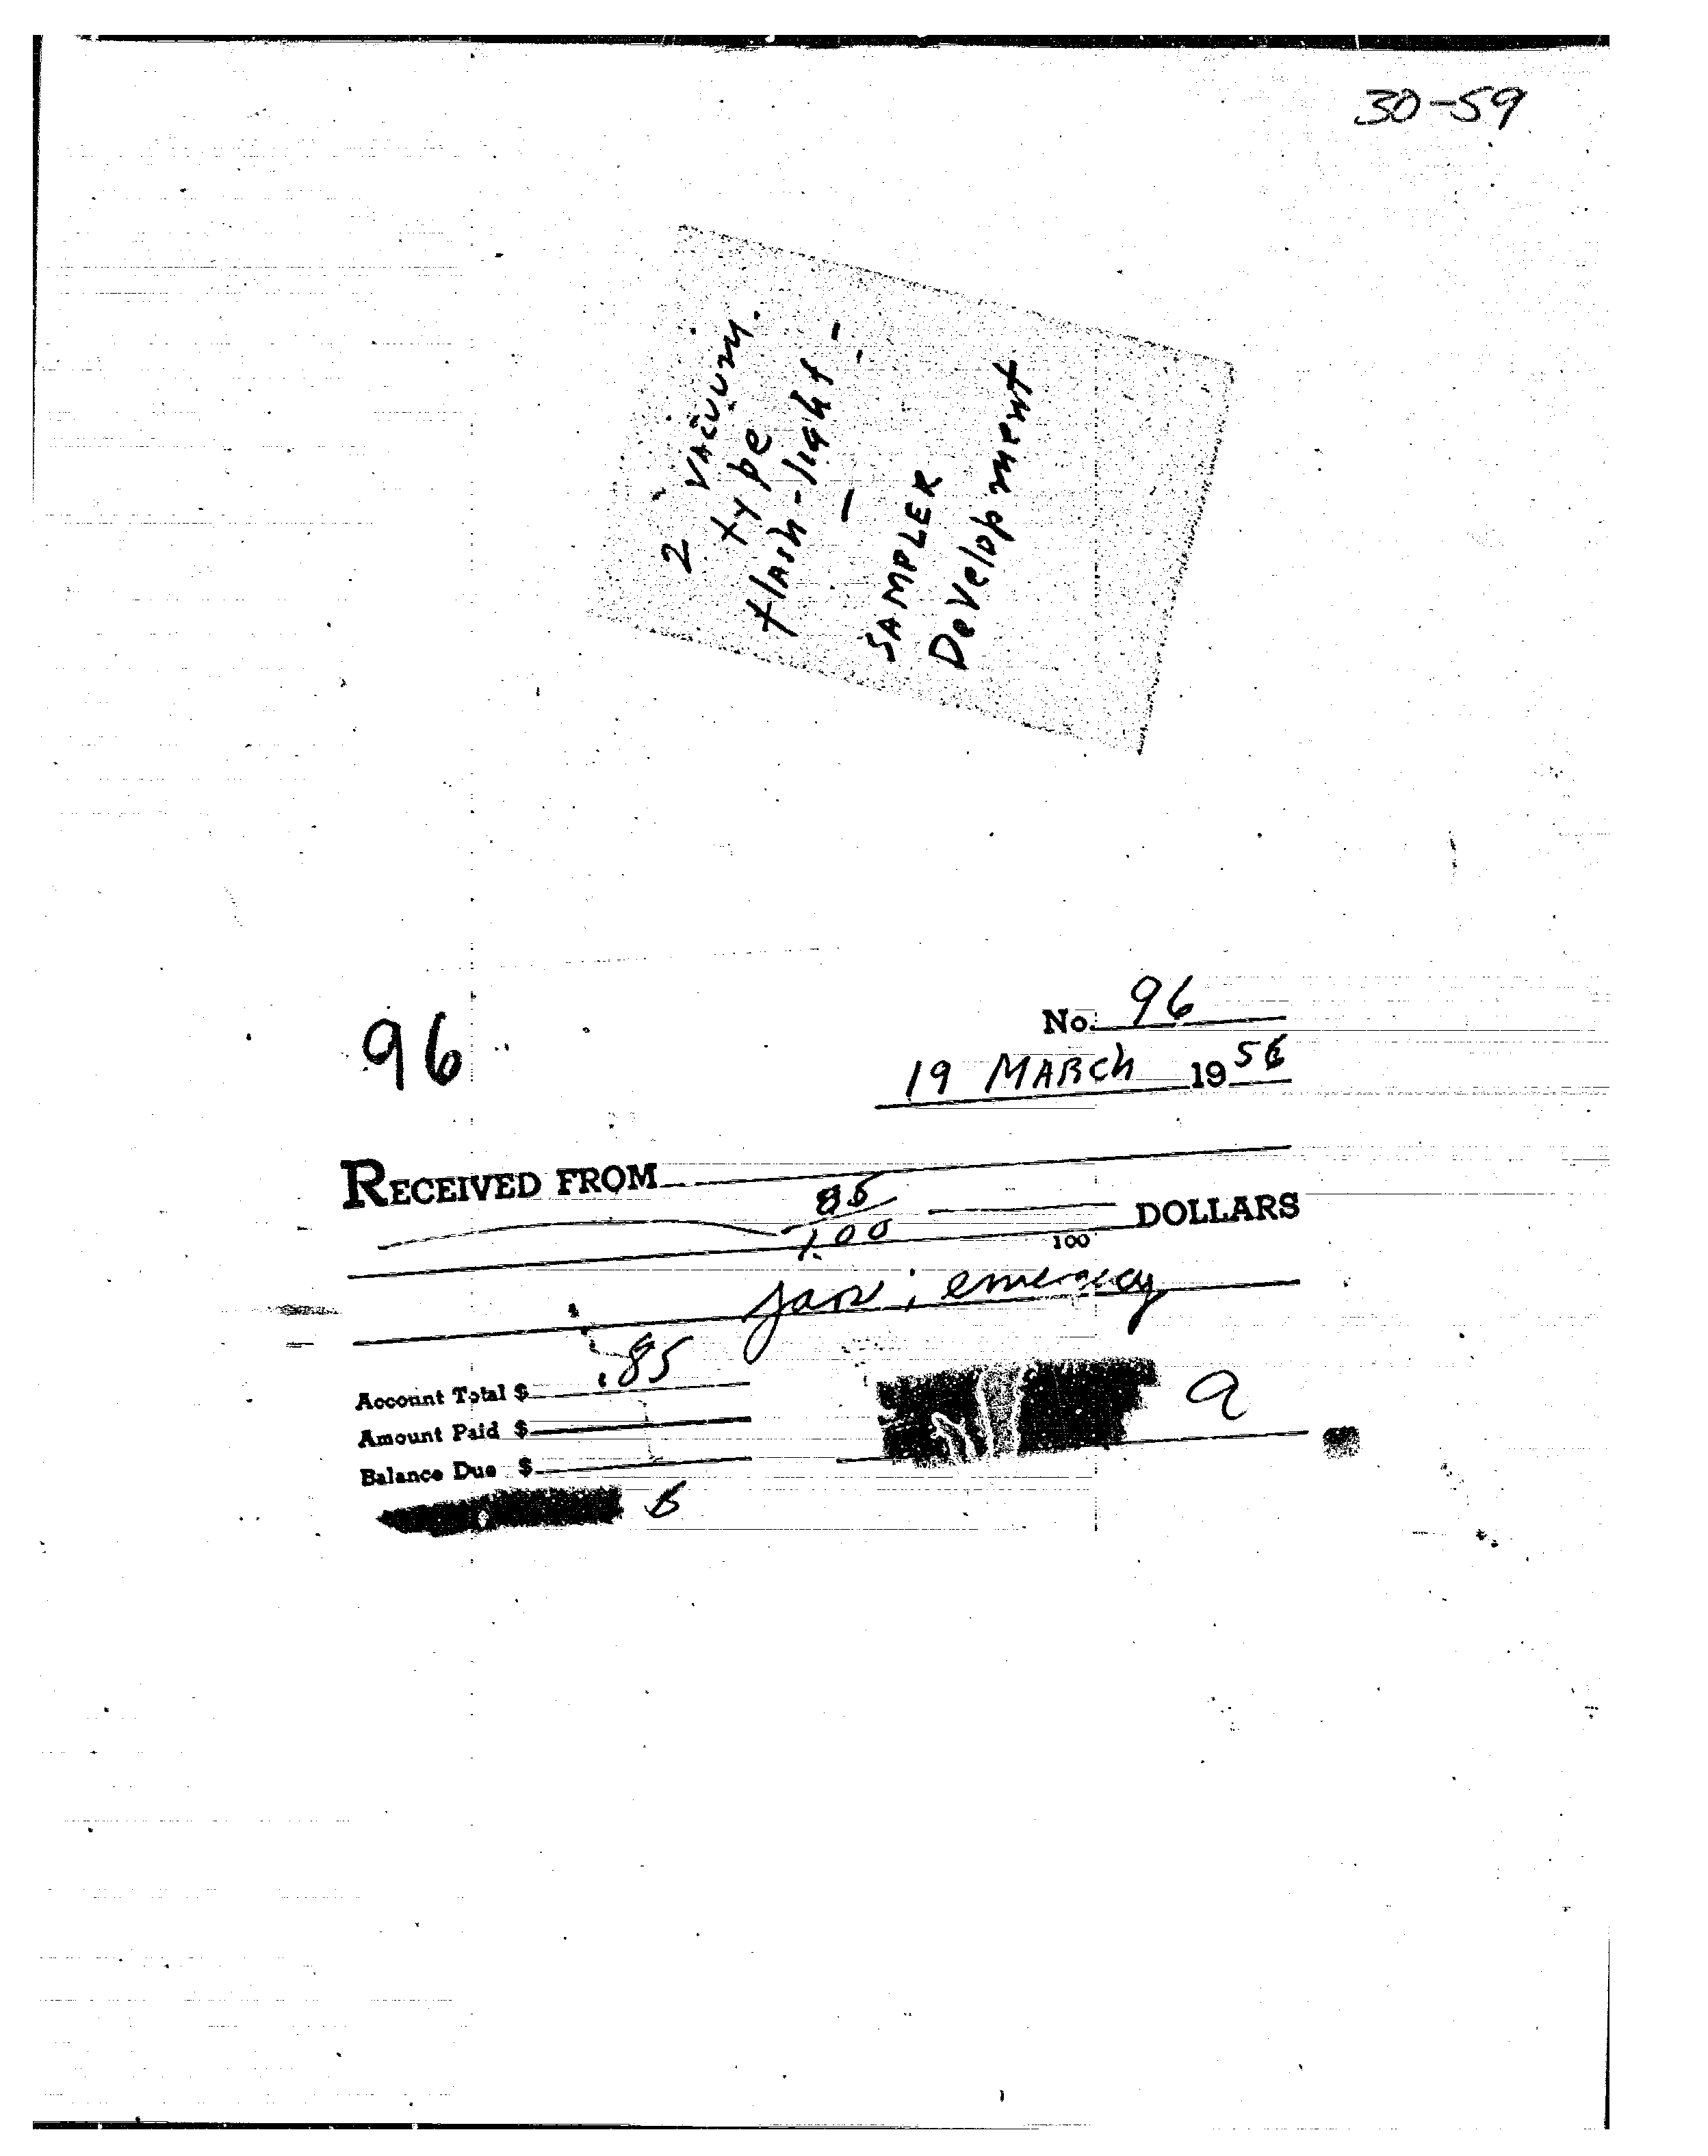 30-59
2 VACUUM.
type
flash-light -
-
SAMPLER
Development
96
No. 96
19 MARCH 1956
RECEIVED FROM
85
1.00 DOLLARS
100
jar; emergecy
Account Total $ .85
Amount Paid $
Balance Due $
a
B